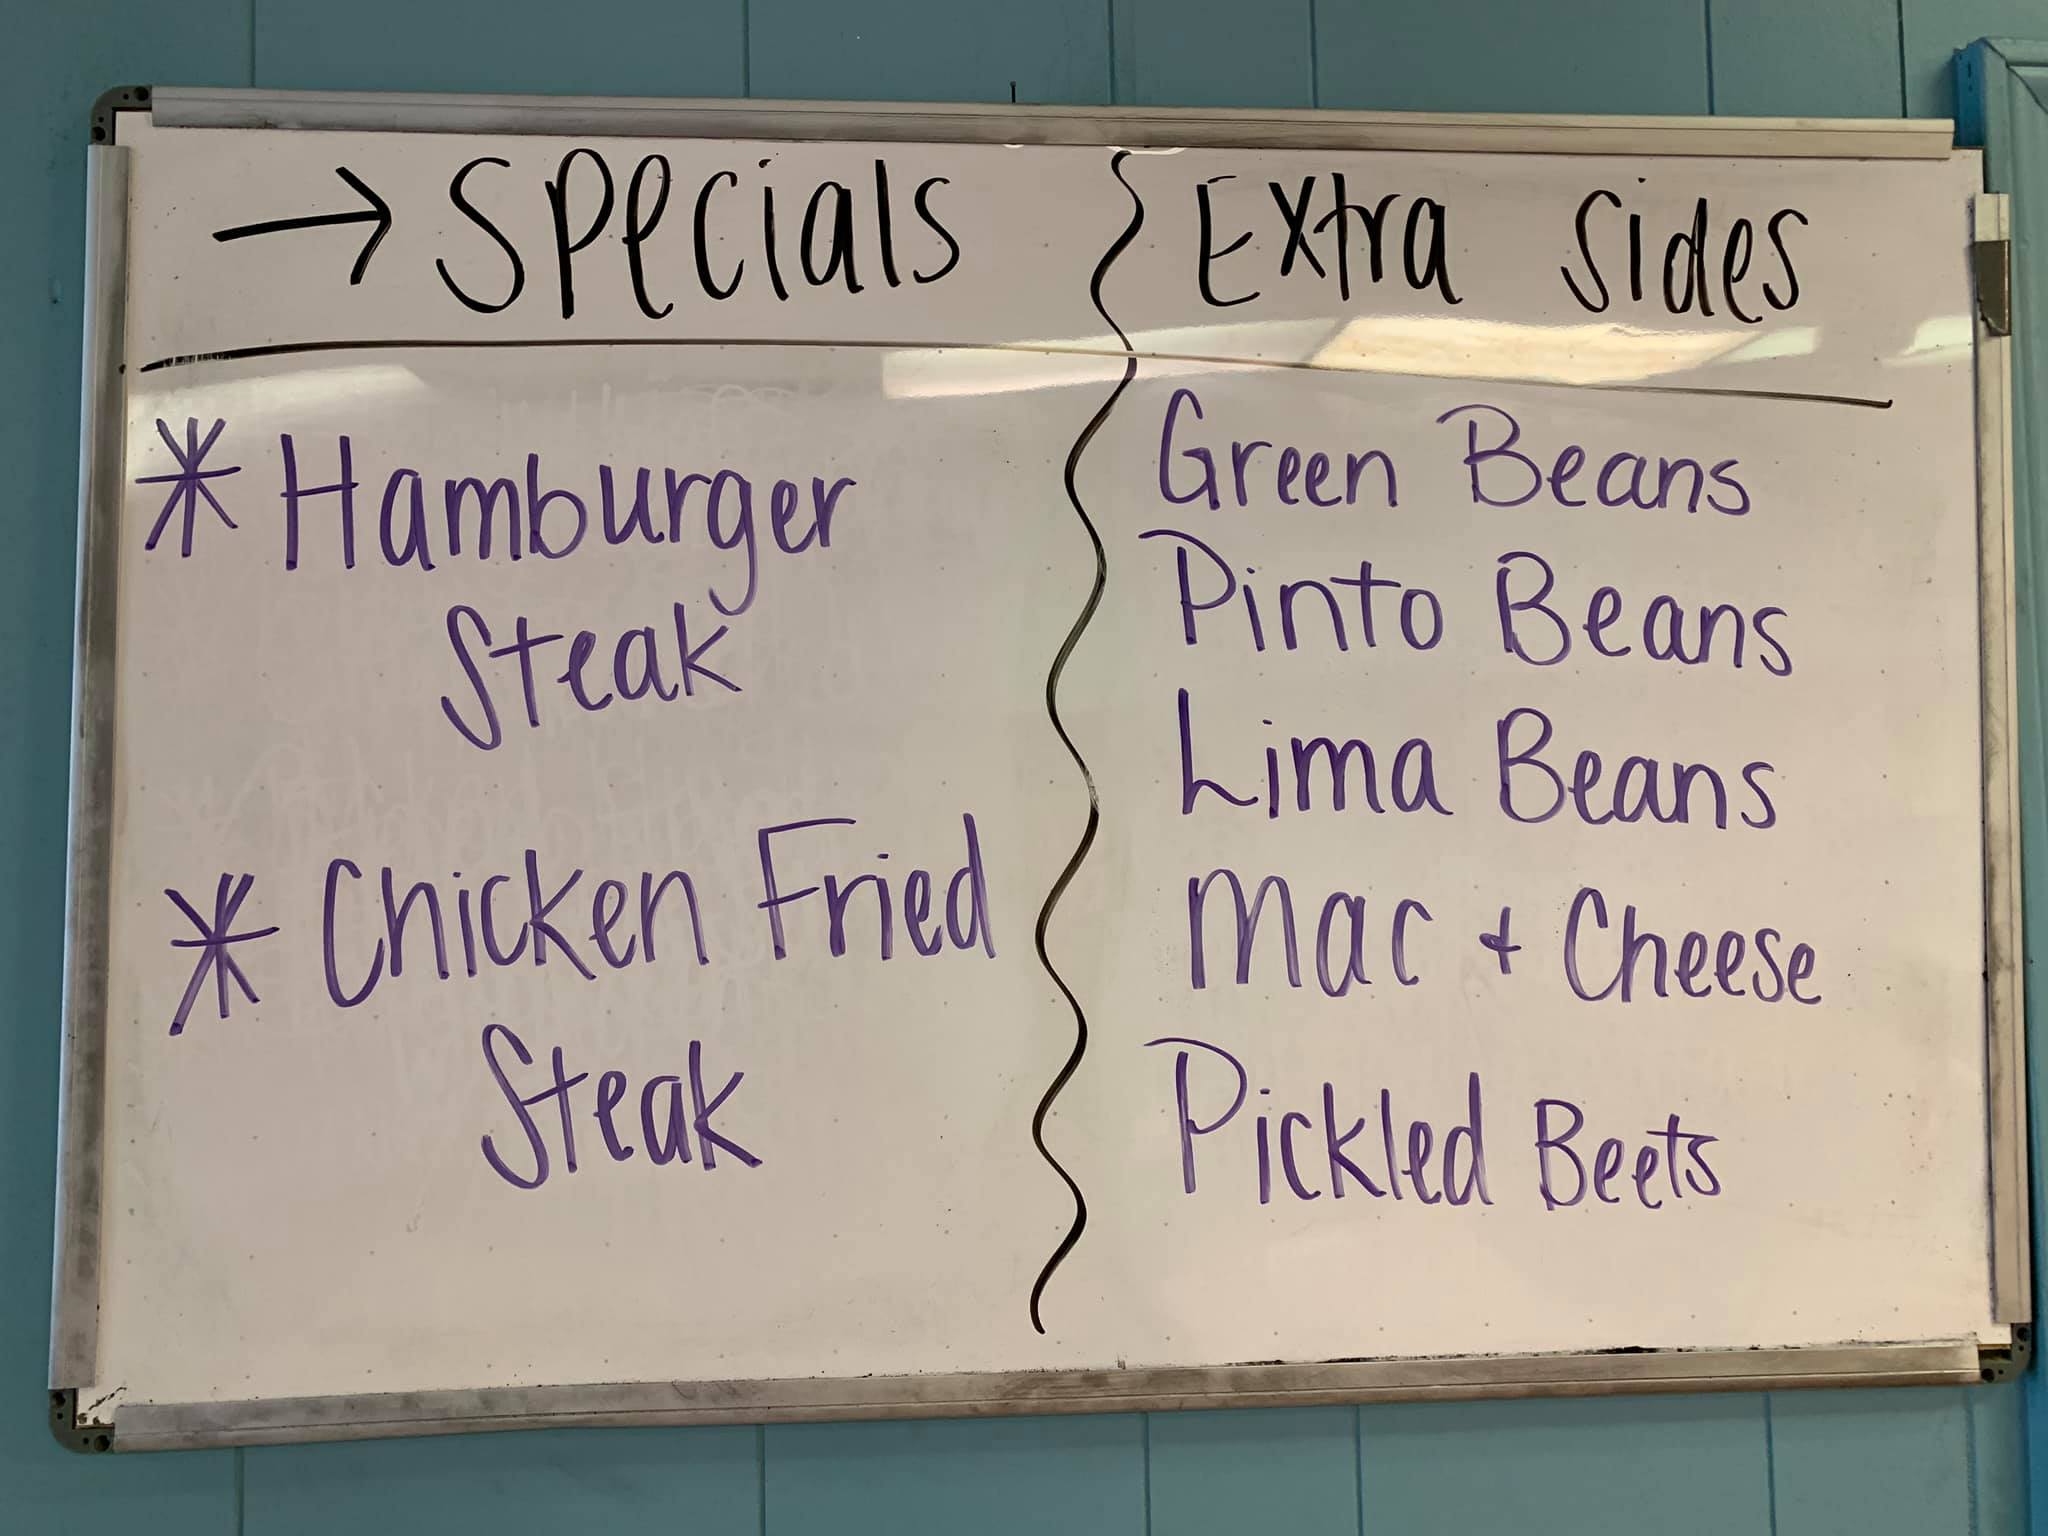 → Specials
* Hamburger
Steak
* Chicken Fried
Steak
Extra Sides
Green Beans
Pinto Beans
Lima Beans
Mac + Cheese
Pickled Beets